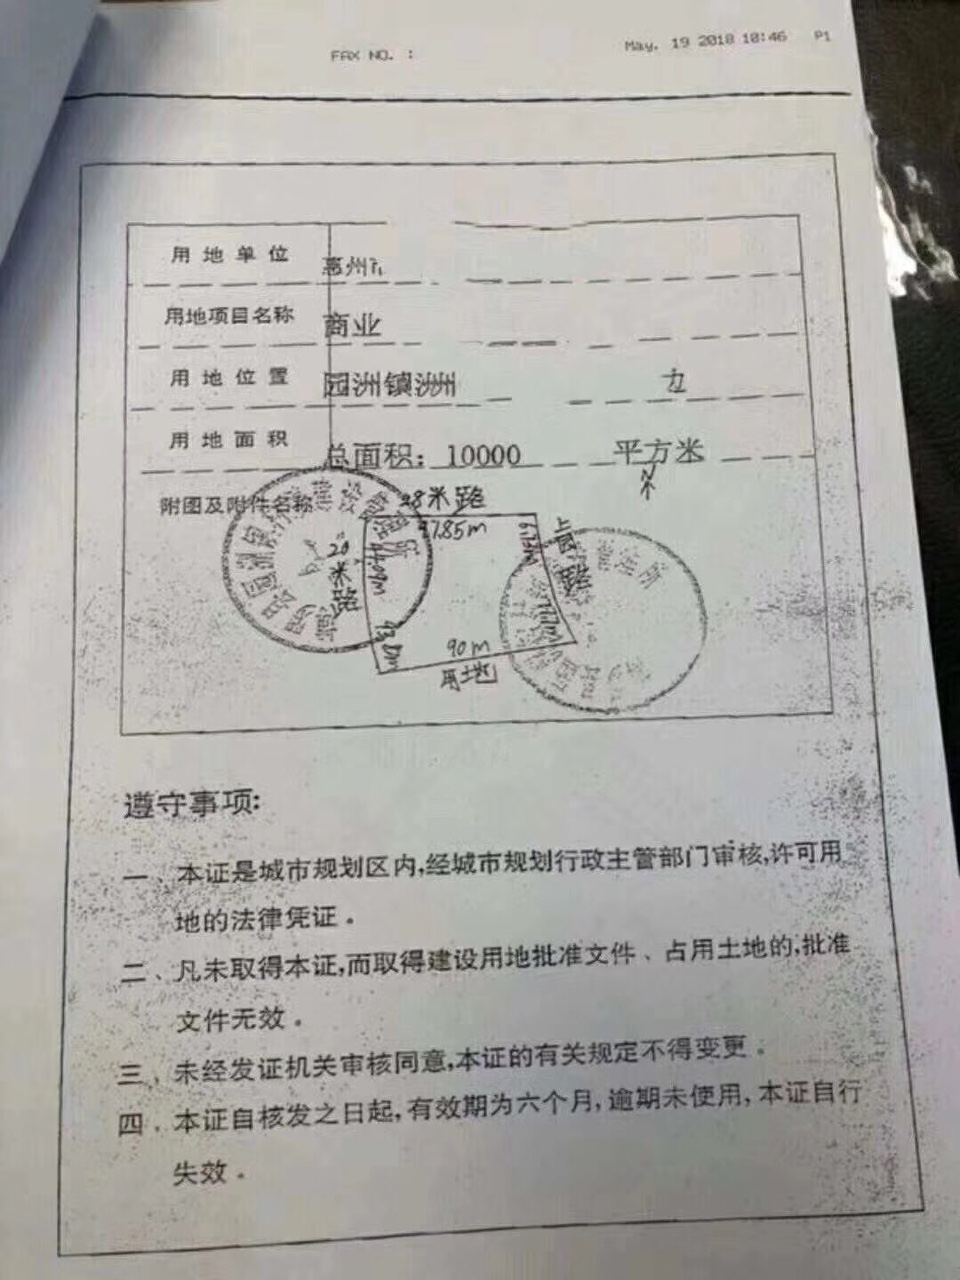 FAX NO. :
May. 19 2018 10:46 P1
用地单位 惠州
用地项目名称 商业
用地位置 园洲镇洲
用地面积 总面积：10000 平方米
附图及附件名称
28米路
97.85m
20米路
90m
用地
遵守事项:
一、本证是城市规划区内,经城市规划行政主管部门审核,许可用
地的法律凭证。
二、凡未取得本证,而取得建设用地批准文件、占用土地的,批准
文件无效。
三、未经发证机关审核同意,本证的有关规定不得变更。
四、本证自核发之日起,有效期为六个月,逾期未使用,本证自行
失效。